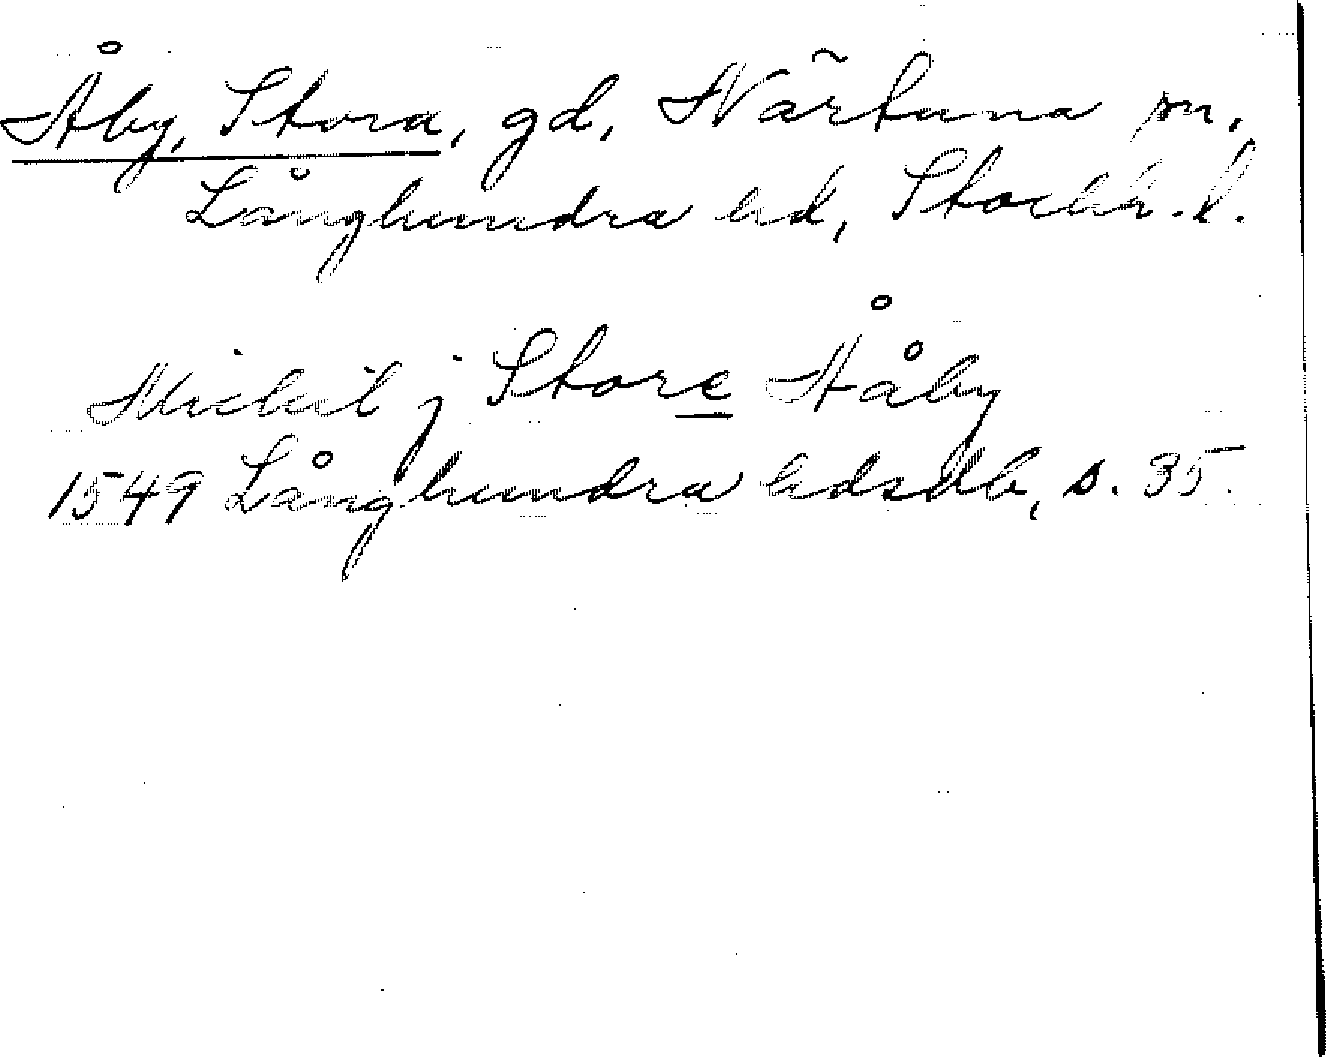 Åby, Stora, gd, Närtuna sn,
Långhundra hd, Stockh. l.
Mickil j Store Ååby
1549 Långhundra hdsdb, s. 35.